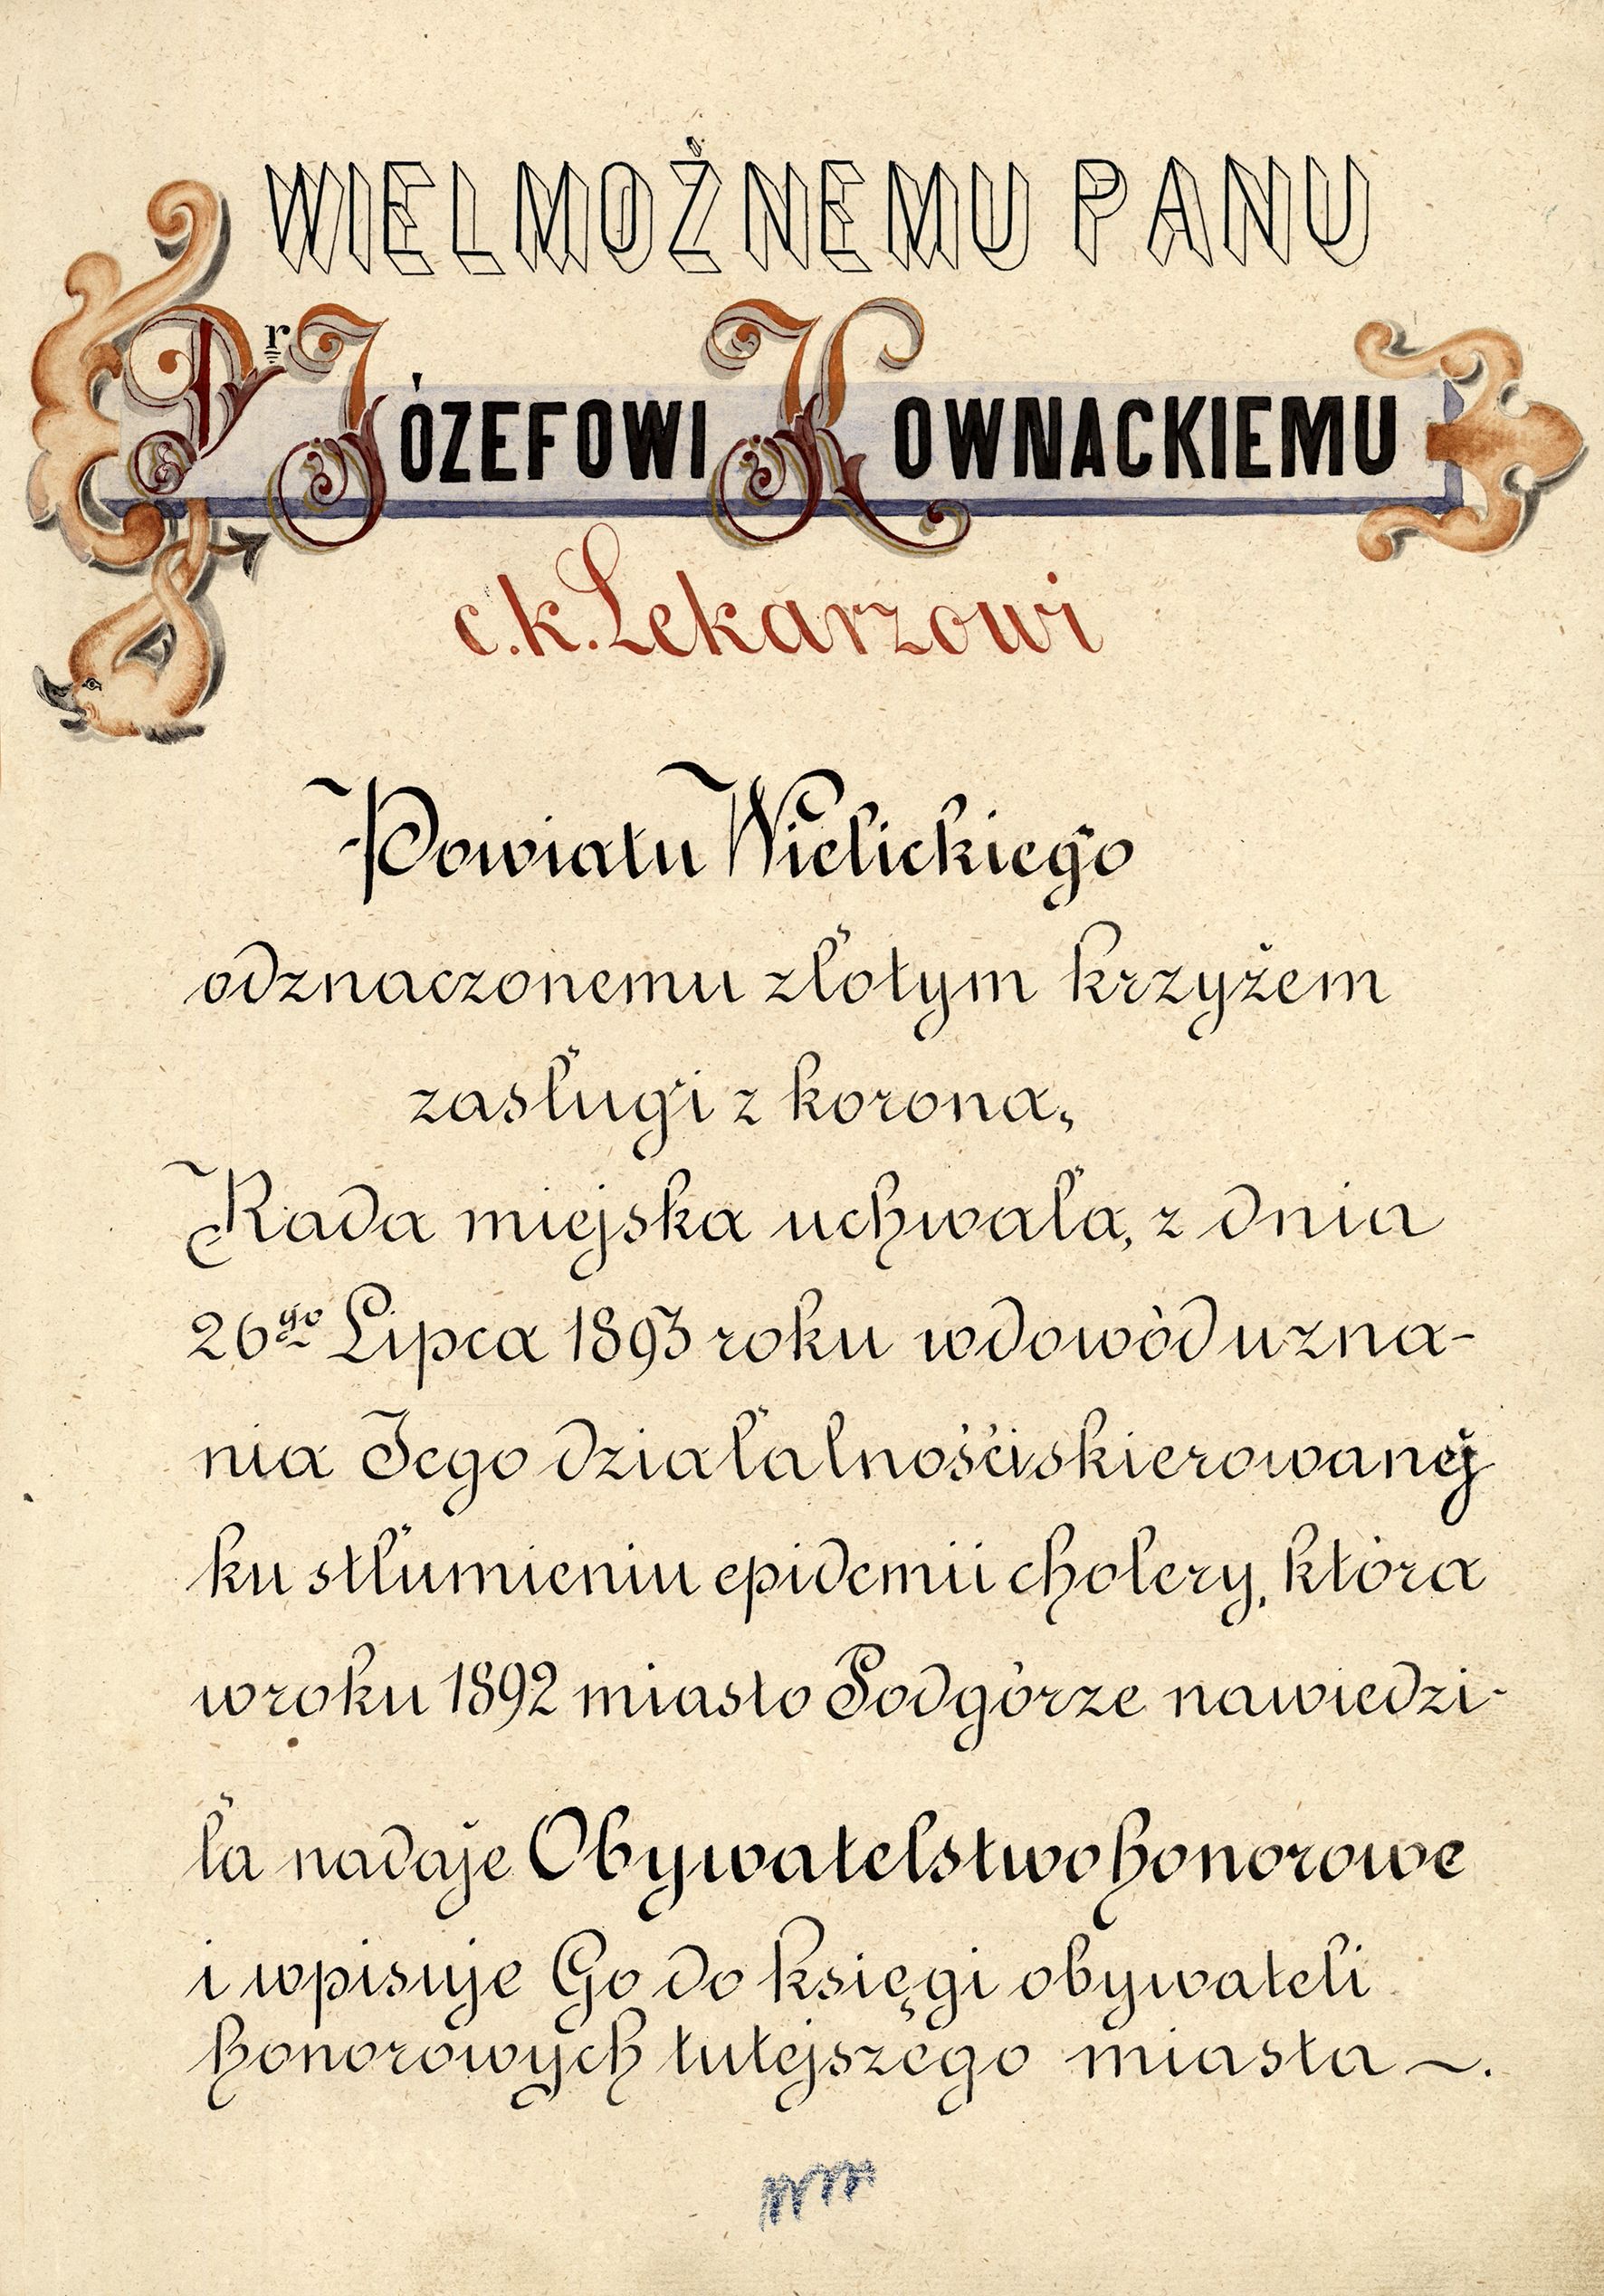 WIELMOŻNEMU PANU
Dr JÓZEFOWI KOWNACKIEMU
c.k. Lekarzowi
Powiatu Wielickiego
odznaczonemu złotym krzyżem
zasługi z koroną,
Rada miejska uchwałą, z dnia
26go Lipca 1893 roku w dowód uzna-
nia Jego działalności skierowanej
ku stłumieniu epidemii cholery, która
w roku 1892 miasto Podgórze nawiedzi-
ła nadaje Obywatelstwo honorowe
i wpisuje Go do księgi obywateli
honorowych tutejszego miasta ~.